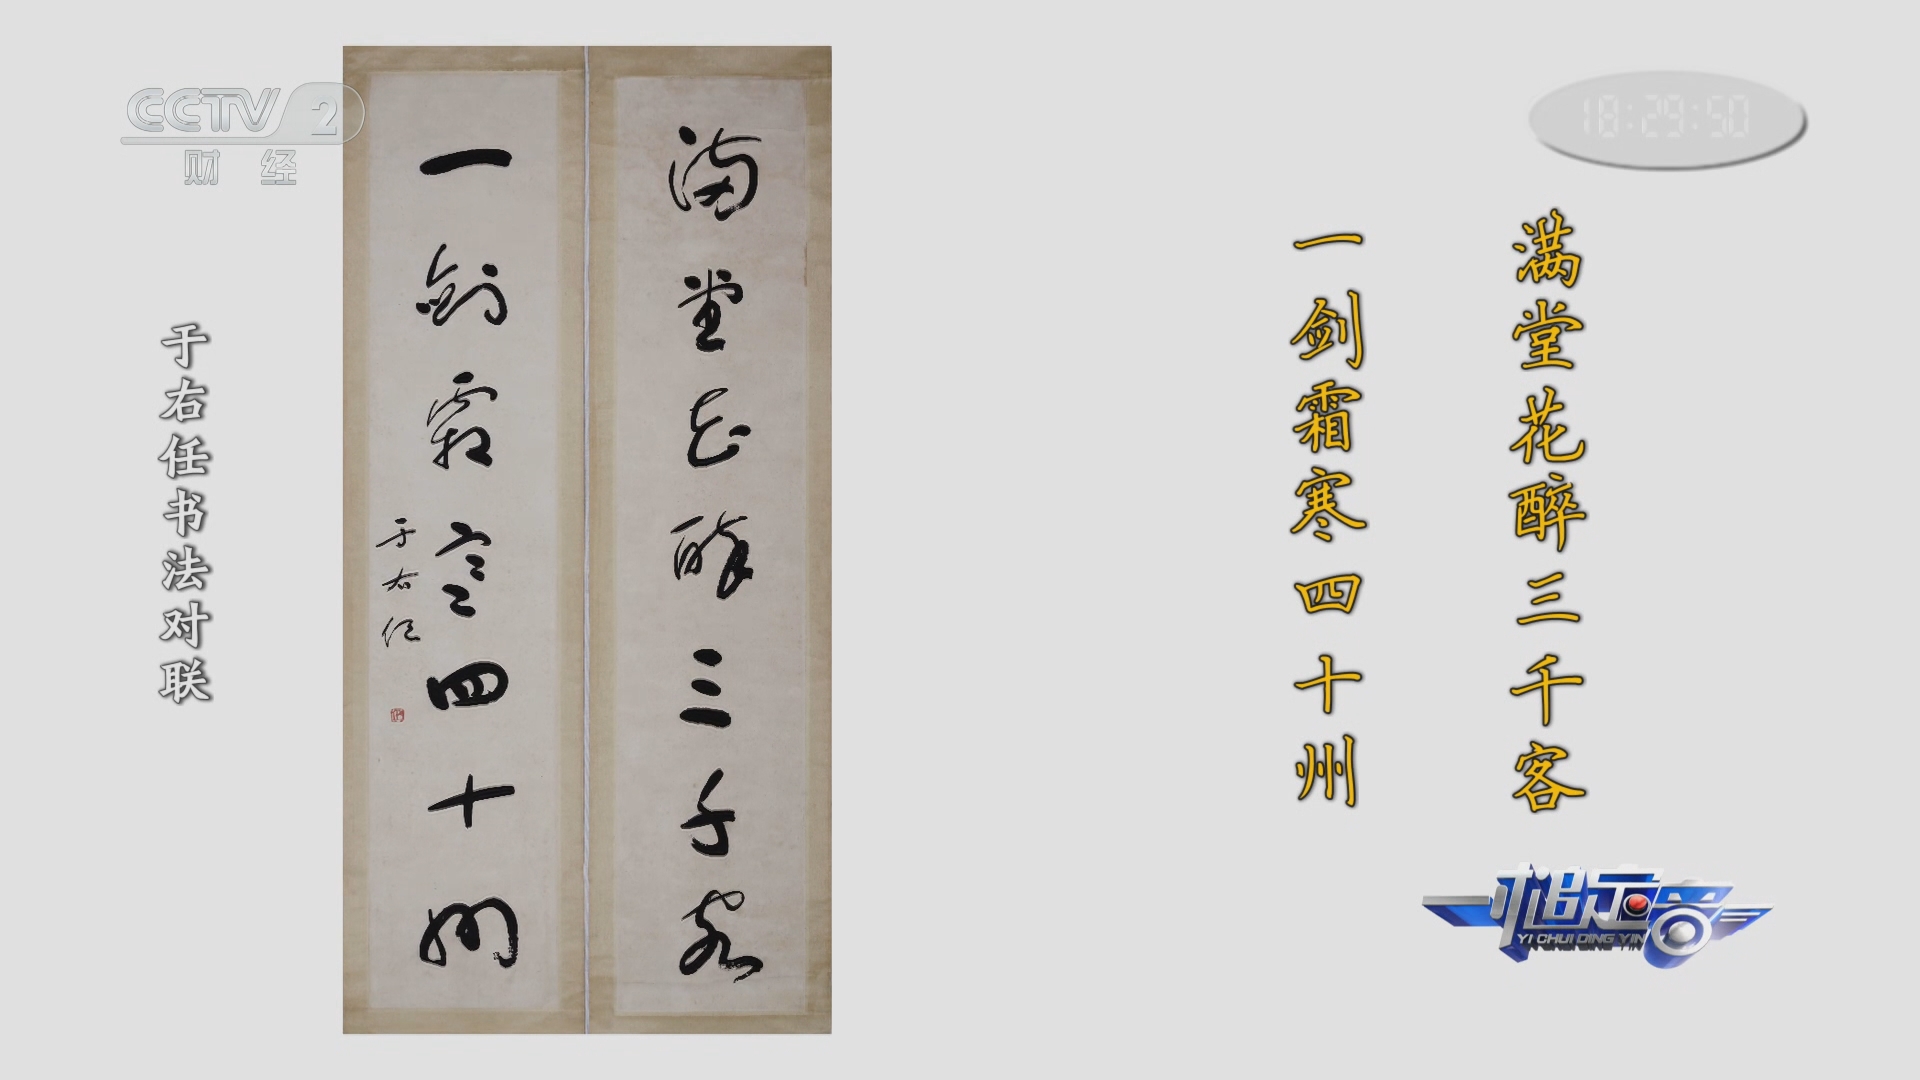 CCTV 2
财 经
18:29:50
满堂花醉三千客
一剑霜寒四十州
于右任
于右任书法对联
满堂花醉三千客
一剑霜寒四十州
一槌定音
YI CHUI DING YIN